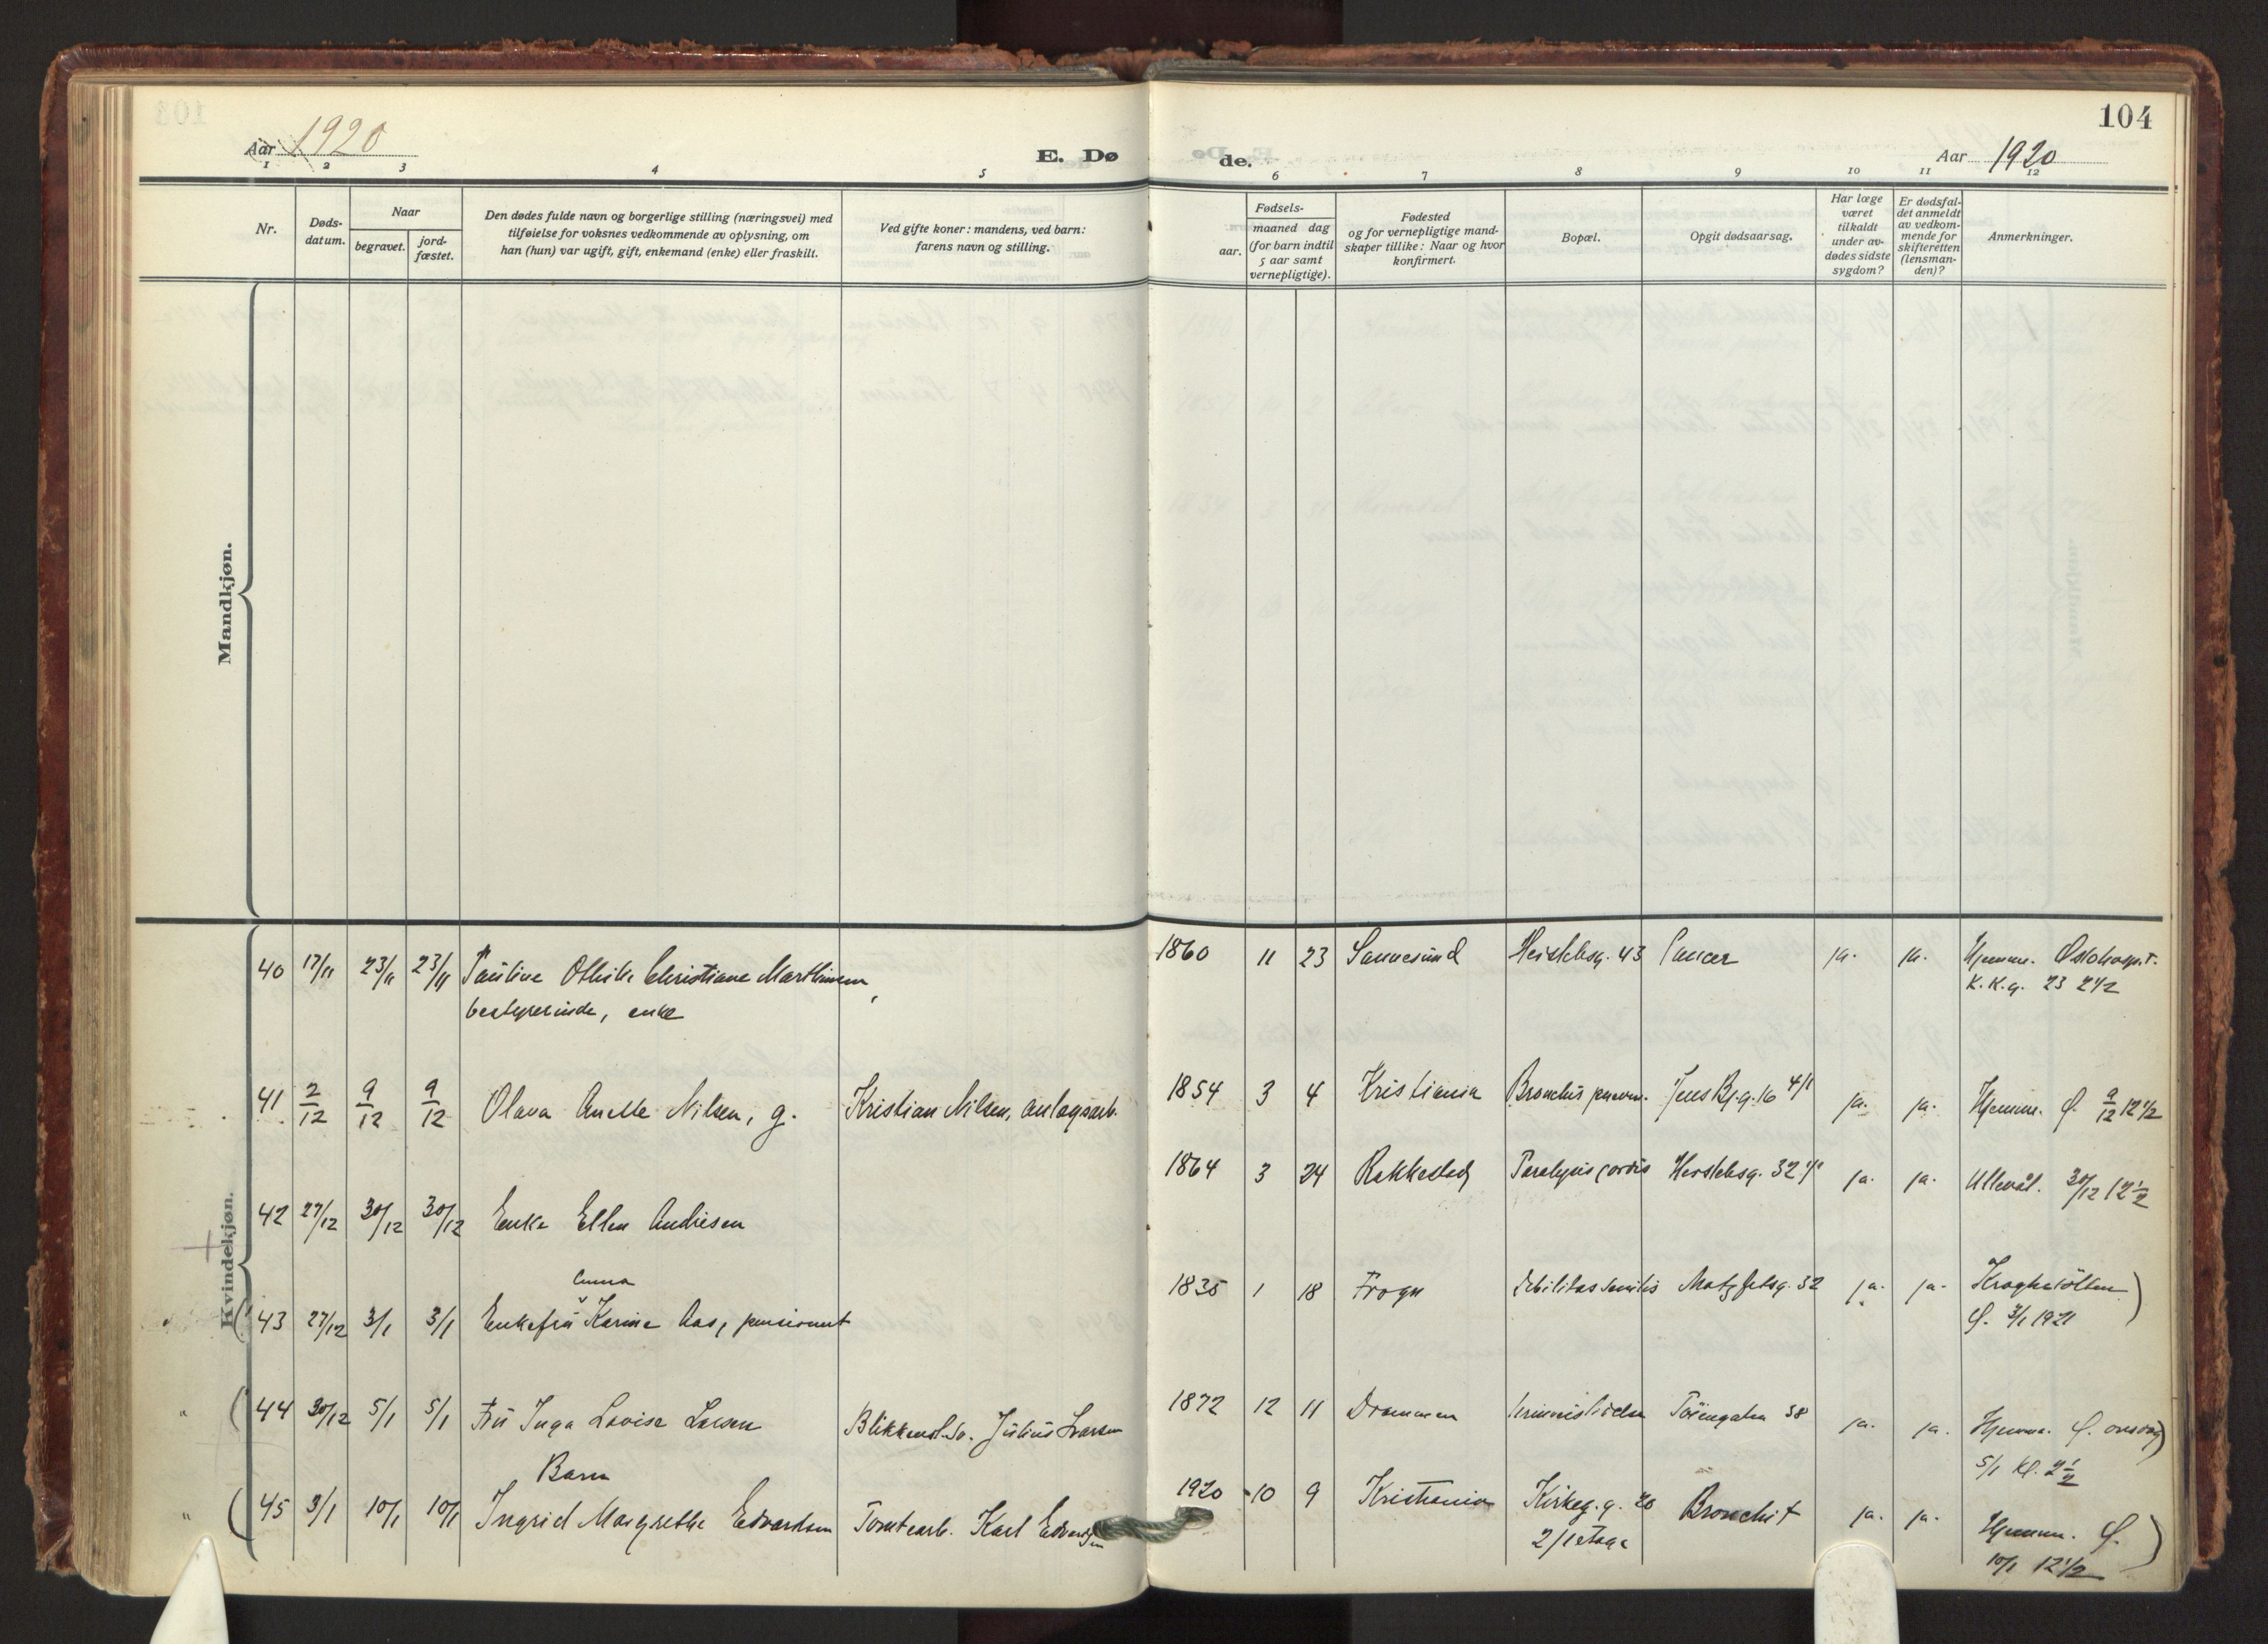 Aar 1920
E. Dø
de.
104
Aar 1920
1 2 3 4 5 6 7 8 9 10 11 12
Nr.
Døds-
datum.
Naar
begravet.
jord-
fæstet.
Den dødes fulde navn og borgerlige stilling (næringsvei) med
tilføielse for voksnes vedkommende av oplysning, om
han (hun) var ugift, gift, enkemand (enke) eller fraskilt.
Ved gifte koner: mandens, ved barn:
farens navn og stilling.
Fødsels-
aar.
maaned dag
(for barn indtil
5 aar samt
vernepligtige).
Fødested
og for vernepligtige mand-
skaper tillike: Naar og hvor
konfirmert.
Bopæl.
Opgit dødsaarsag.
Har læge
været
tilkaldt
under av-
dødes sidste
sygdom?
Er dødsfal-
det anmeldt
av vedkom-
mende for
skifteretten
(lensman-
den)?
Anmerkninger.
Mandkjøn.
Kvindekjøn.
40 17/11 23/11 23/11 Pauline Othilie Christiane Marthinsen, 1860 11 23 Sannesund Heislebsg. 43 Cancer ja. ja. Hjemme.
bestyrerinde, enke K.K.g. 23 2 1/2
41 2/12 9/12 9/12 Olava Anette Nilsen, g. Kristian Nilsen, anlagsarb. 1854 3 4 Kristiania Bronchus pneum. Jens Bj.g. 16 4/1 ja. ja. Hjemme. 9/12 12 1/2
42 27/12 30/12 30/12 Enke Ellen Andresen 1864 3 24 Rakkestad Paralysis cordis Herslebsg. 32 ja. ja. Ullevål. 30/12 12 1/2
Anna
43 27/12 3/1 3/1 Enkefru Karine Aas, pensionert 1835 1 18 Frogn debilitas senilis Motzfeltsg. 32 ja. ja. Kroghstøtten
3/1 1921
44 30/12 5/1 5/1 Fru Inga Lovise Larsen Blikkensl. Sv. Julius Larsen 1872 12 11 Drammen Tøiengaten 38 ja. ja. Hjemme.
5/1 kl. 2 1/2
Barn
45 3/1 10/1 10/1 Ingrid Margrethe Edvardsen Tomtearb. Karl Edvardsen 1920 10 9 Kristiania Kirkeg. g. 20 Bronchit ja. ja. Hjemme.
2/1 etage 10/1 12 1/2